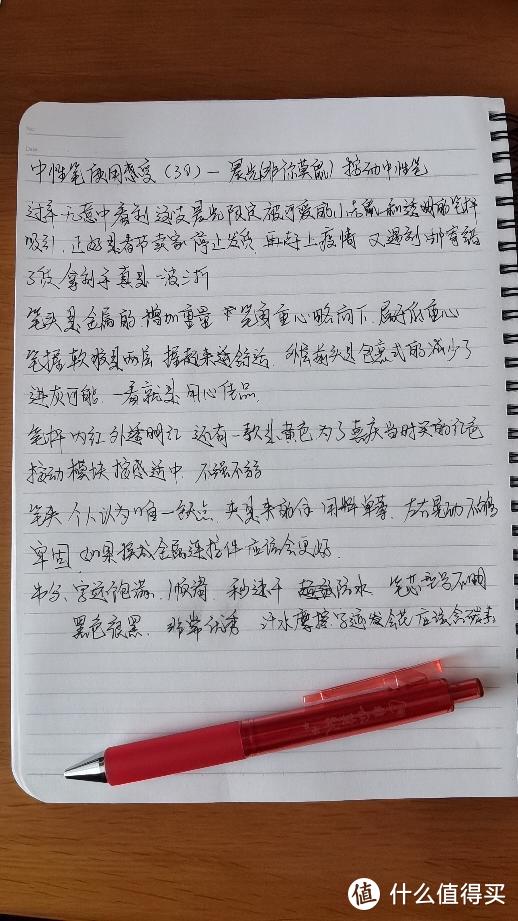 No.
Date
中性笔使用感受(38)—晨光(非你莫鼠)按动中性笔
过年无意中看到这支晨光限定被可爱的小老鼠和透明的笔杆
吸引,正好是春节卖家停止发货,再赶上疫情又遇到邮寄错
了货,拿到手真是一波三折
笔头是金属的增加重量 笔身重心略向下,属于低重心
笔握软胶是两层 握起来送舒适,外层前头是包裹式的减少了
进灰可能,一看就是用心佳品
笔杆内红外透明红 还有一款是黄色 为了喜庆当时买的红色
按动模块按感适中,不强不弱
笔夹 个人认为唯一缺点,夹是来 用料单薄,左右晃动不够
牢固,如果换成金属连接件应该会更好.
书写,字迹饱满,顺滑,秒速干 防水 笔芯型号不明
黑色很黑,非常优秀 汗水摩擦字迹发会花 应该含碳素
值 什么值得买